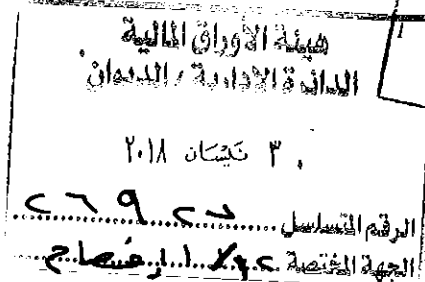 هيئة الأوراق المالية
الدائرة الادارية / الديوان
٠٣ نيسان ٢٠١٨
الرقم المتسلسل
الجهة المختصة الافصاح